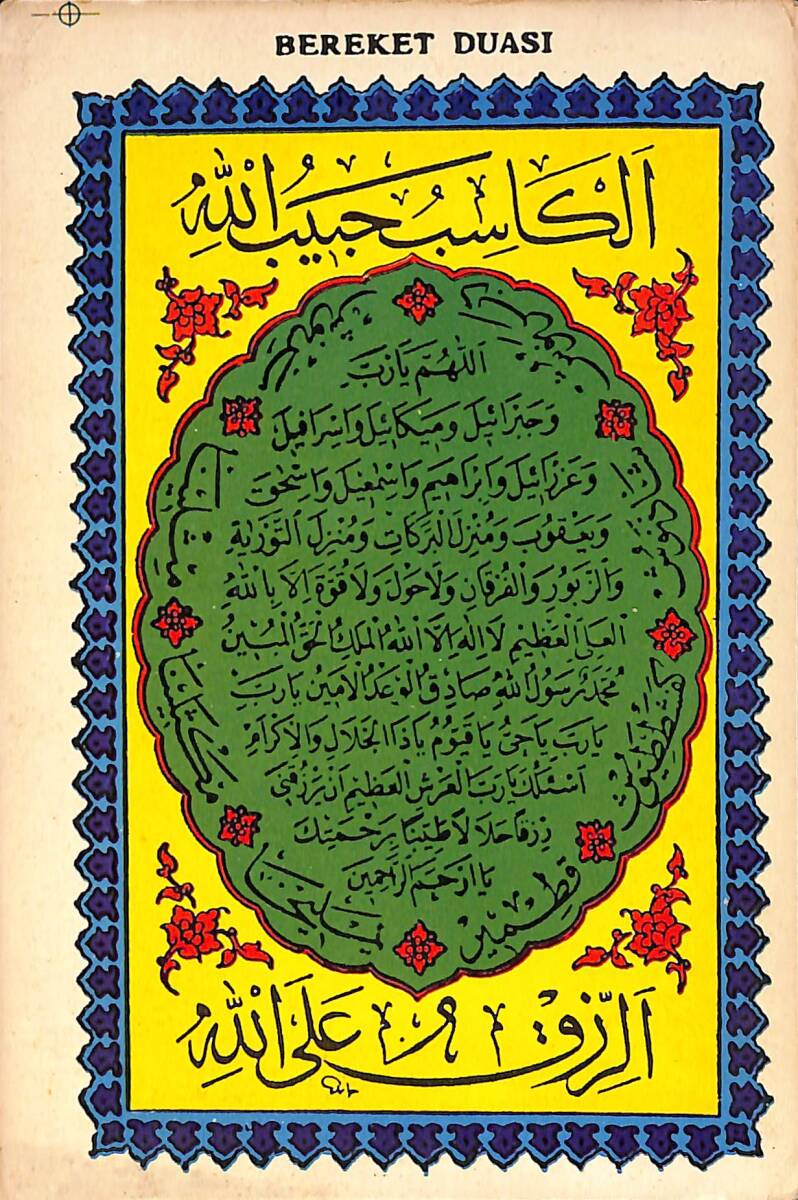 BEREKET DUASI
اَلْكَاسِبُ حَبِيبُ اللهِ
اَللّٰهُمَّ يَارَبَّ
وَجَبْرَائِيلَ وَمِيكَائِيلَ وَاِسْرَافِيلَ
وَعَزْرَائِيلَ وَاِبْرَاهِيمَ وَاِسْمٰعِيلَ وَاِسْحٰقَ
وَيَعْقُوبَ وَمُنْزِلَ الْبَرَكَاتِ وَمُنْزِلَ التَّوْرٰيةِ
وَالزَّبُورِ وَالْفُرْقَانِ وَلَاحَوْلَ وَلَاقُوَّةَ اِلَّا بِاللهِ
الْعَلِىِّ الْعَظِيمِ لَا اِلٰهَ اِلَّا اللهُ الْمَلِكُ الْحَقُّ الْمُبِينُ
مُحَمَّدٌ رَسُولُ اللهِ صَادِقُ الْوَعْدِ الْاَمِينُ يَارَبِّ
يَارَبِّ يَاحَىُّ يَاقَيُّومُ يَاذَا الْجَلَالِ وَالْاِكْرَامِ
اَسْئَلُكَ يَارَبَّ الْعَرْشِ الْعَظِيمِ اَنْ تَرْزُقَنِى
رِزْقًا حَلَالًا طَيِّبًا بِرَحْمَتِكَ
يَا اَرْحَمَ الرَّاحِمِينَ
قِطْمِيرْ
يَمْلِيخَا
اَلرِّزْقُ عَلَى اللهِ